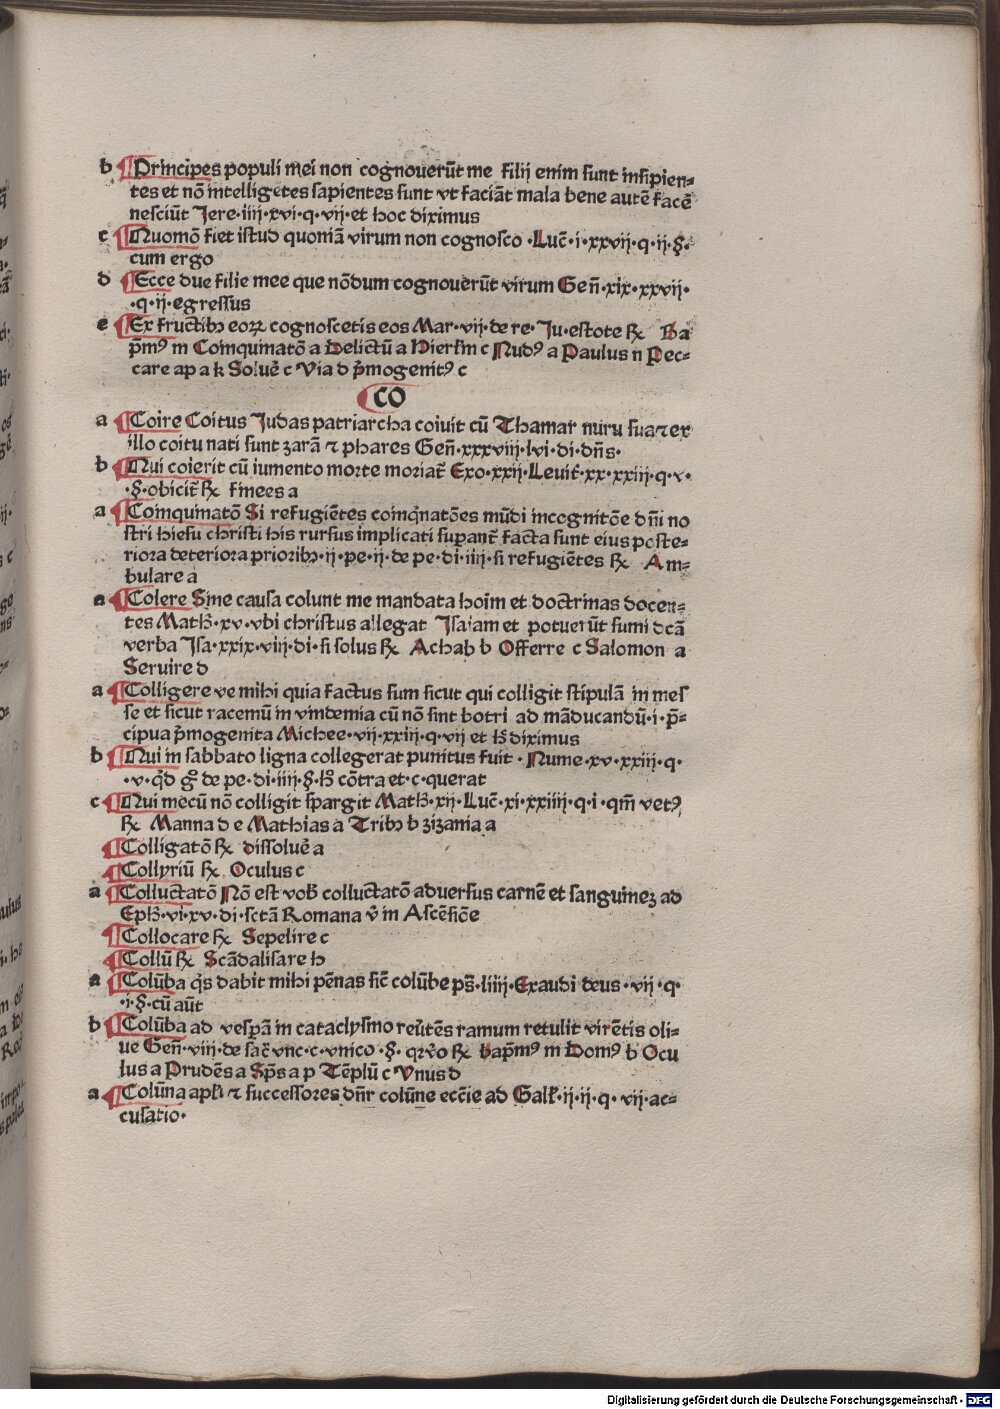 b ¶Principes populi mei non cognouerūt me filij enim sunt insipien=
tes et nō intelligētes sapientes sunt vt faciāt mala bene autē facē
nesciūt Jere·iiij·xvi·q·vij·et hoc diximus
c ¶Quomō fiet istud quoniā virum non cognosco·Luc̄·i·xxvij·q·ij·§·
cum ergo
d ¶Ecce due filie mee que nōdum cognouerūt virum Gen̄·xix·xxvij·
·q·ij·egressus
e ¶Ex fructibꝫ eoꝝ cognoscetis eos Mar·vij·de re·Ju·estote ℞ Ba
p̄mꝰ m Coinquinatō a Delictū a Hierl̄m c Nudꝰ a Paulus n Pec=
care ap a k Soluē c Via d p̄mogenitꝰ c
¶CO
a ¶Coire Coitus Judas patriarcha coiuit cū Thamar nuru sua ⁊ ex
illo coitu nati sunt zarā ⁊ phares Gen̄·xxxviij·lvi·di·dn̄s·
b ¶Qui coierit cū iumento morte moriat̄ Exo·xxij·Leuit̄·xx·xxiij·q·v·
·§·obicit̄ ℞ finees a
a ¶Coinquinatō Si refugiētes coinq̄natōes mūdi incognitōe dn̄i no
stri hiesu christi his rursus implicati supant̄ facta sunt eius poste=
riora deteriora prioribꝫ·ij·pe·ij·de pe·di·iiij·si refugiētes ℞ Am=
bulare a
a ¶Colere Sine causa colunt me mandata hoim et doctrinas docen=
tes Math̄·xv·vbi christus allegat Jsaiam et potuerūt sumi dcā
verba Jsa·xxix·viij·di·si solus ℞ Achab b Offerre c Salomon a
Seruire d
a ¶Colligere ve mihi quia factus sum sicut qui colligit stipulā in mes
se et sicut racemū in vindemia cū nō sint botri ad māducandū·i·p̄=
cipua p̄mogenita Michee·vij·xxiij·q·vij et hꝫ diximus
b ¶Qui in sabbato ligna collegerat punitus fuit·Nume·xv·xxiij·q·
·v·q̄d gͦ de pe·di·iiij·§·hꝫ cōtra et·c·querat
c ¶Qui mecū nō colligit spargit Math̄·xij·Luc̄·xi·xxiiij·q·i·qm̄ vetꝰ
℞ Manna d e Mathias a Tribꝫ b zizania a
¶Colligatō ℞ dissoluē a
¶Collyriū ℞ Oculus c
a ¶Colluctatō Nō est vob̄ colluctatō aduersus carnē et sanguineꝫ ad
Eph̄·vi·xv·di·sctā Romana v̄ in Ascēsiōe
¶Collocare ℞ Sepelire c
¶Collū ℞ Scādalisare h
a ¶Colūba q̄s dabit mihi pēnas sic̄ colūbe ps̄·liiij·Exaudi deus·vij·q·
·i·§·cū aūt
b ¶Colūba ad vespā in cataclysmo reūtēs ramum retulit virētis oli=
ue Gen̄·viij·de sac̄ vnc·c·vnico·§· ℞ bap̄mꝰ m Domꝰ b Ocu
lus a Prudēs a Sp̄s a p Tēplū c Vnus d
a ¶Colūna apl̄i ⁊ successores dn̄r colūne ecc̄ie ad Galł·ij·ij·q·vij·ac=
cusatio·
Digitalisierung gefördert durch die Deutsche Forschungsgemeinschaft - DFG